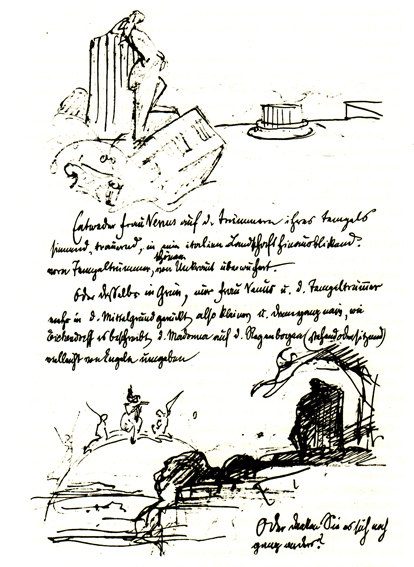 Entweder Frau Venus auf d. Trümmern ihres Tempels
sinnend, trauernd, in eine italien Landschaft hinausblickend.
vorn Tempeltrümmer, von Unkraut überwuchert.
Oder dasselbe in Grün, nur Frau Venus u. d. Tempeltrümmer
mehr in d. Mittelgrund gerückt also kleiner u. dann ganz vorn, wie
Eichendorff es beschreibt d. Madonna auf d. Regenbogen (stehend oder sitzend)
vielleicht von Engeln umgeben
Oder denken Sie es sich noch
ganz anders?